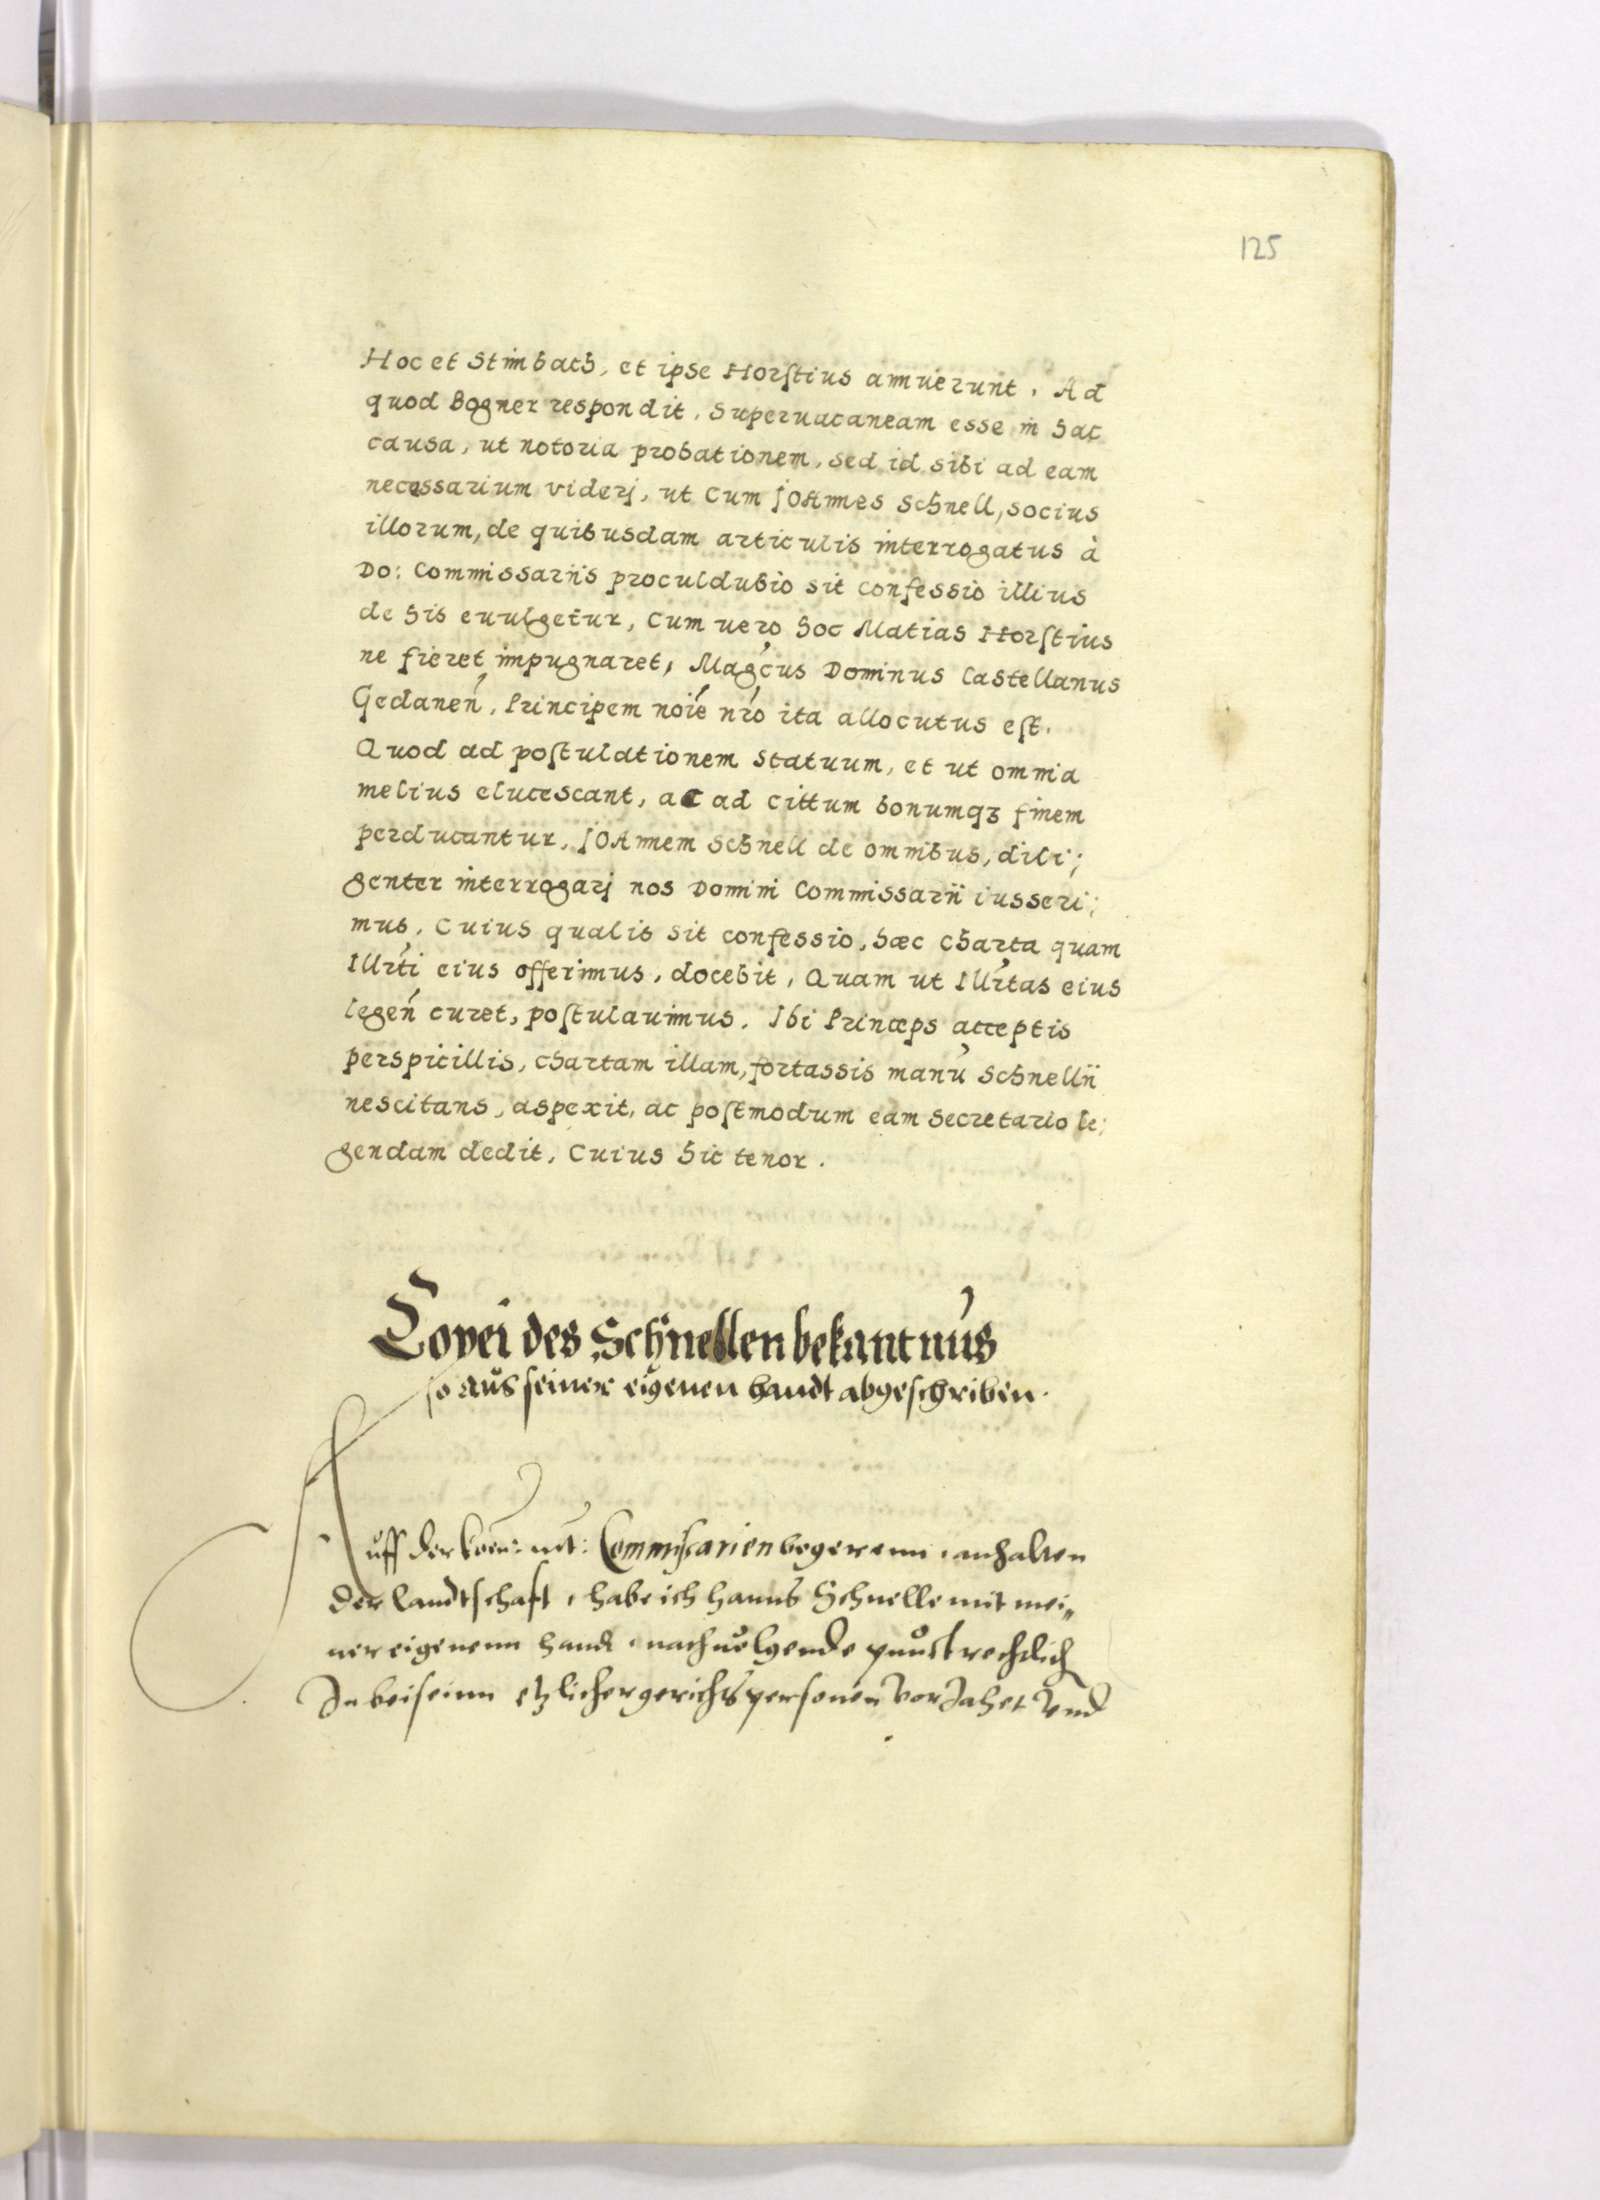 125
Hoc et Stimbach, et ipse Horstius annuerunt. Ad
quod Bogner respondit, Superuacaneam esse in hac
causa, ut notoria probationem, sed id sibi ad eam
necessarium viderj, ut Cum JOAnnes Schnell, socius
illorum, de quibusdam articulis interrogatus à
Do: Commissariis proculdubio sit confessio illius
de his euulgetur, Cum uero hoc Matias Horstius
ne fieret impugnaret, Magcus Dominus Castellanus
Gedanen, Principem noie nro ita allocutus est.
Quod ad postulationem Statuum, et ut omnia
melius elucescant, ac ad cittum bonumqꝫ finem
perducantur, JOAnnem Schnell de omnibus, dili;
genter interrogarj nos Domini Commissarii iusseri;
mus, Cuius qualis sit confessio, hæc charta quam
Illrti eius offerimus, docebit, Quam ut Illrtas eius
legen curet, postulauimus. Ibi Princeps acceptis
perspicillis, chartam illam, fortassis manu Schnellii
nescitans, aspexit, ac postmodum eam Secretario le;
gendam dedit, Cuius hic tenor.
Copei des Schnellen bekantnus
so aus seiner eigenen handt abgeschriben.
Auff der koen: mt: Commissarien begerenn, anhalten
der landtschaft, habe ich hanns Schnelle mit mei„
ner eigenenn handt nachuolgende punckt rechtlich
In beiseinn etzlicher gerichts personen vorJahet vnd